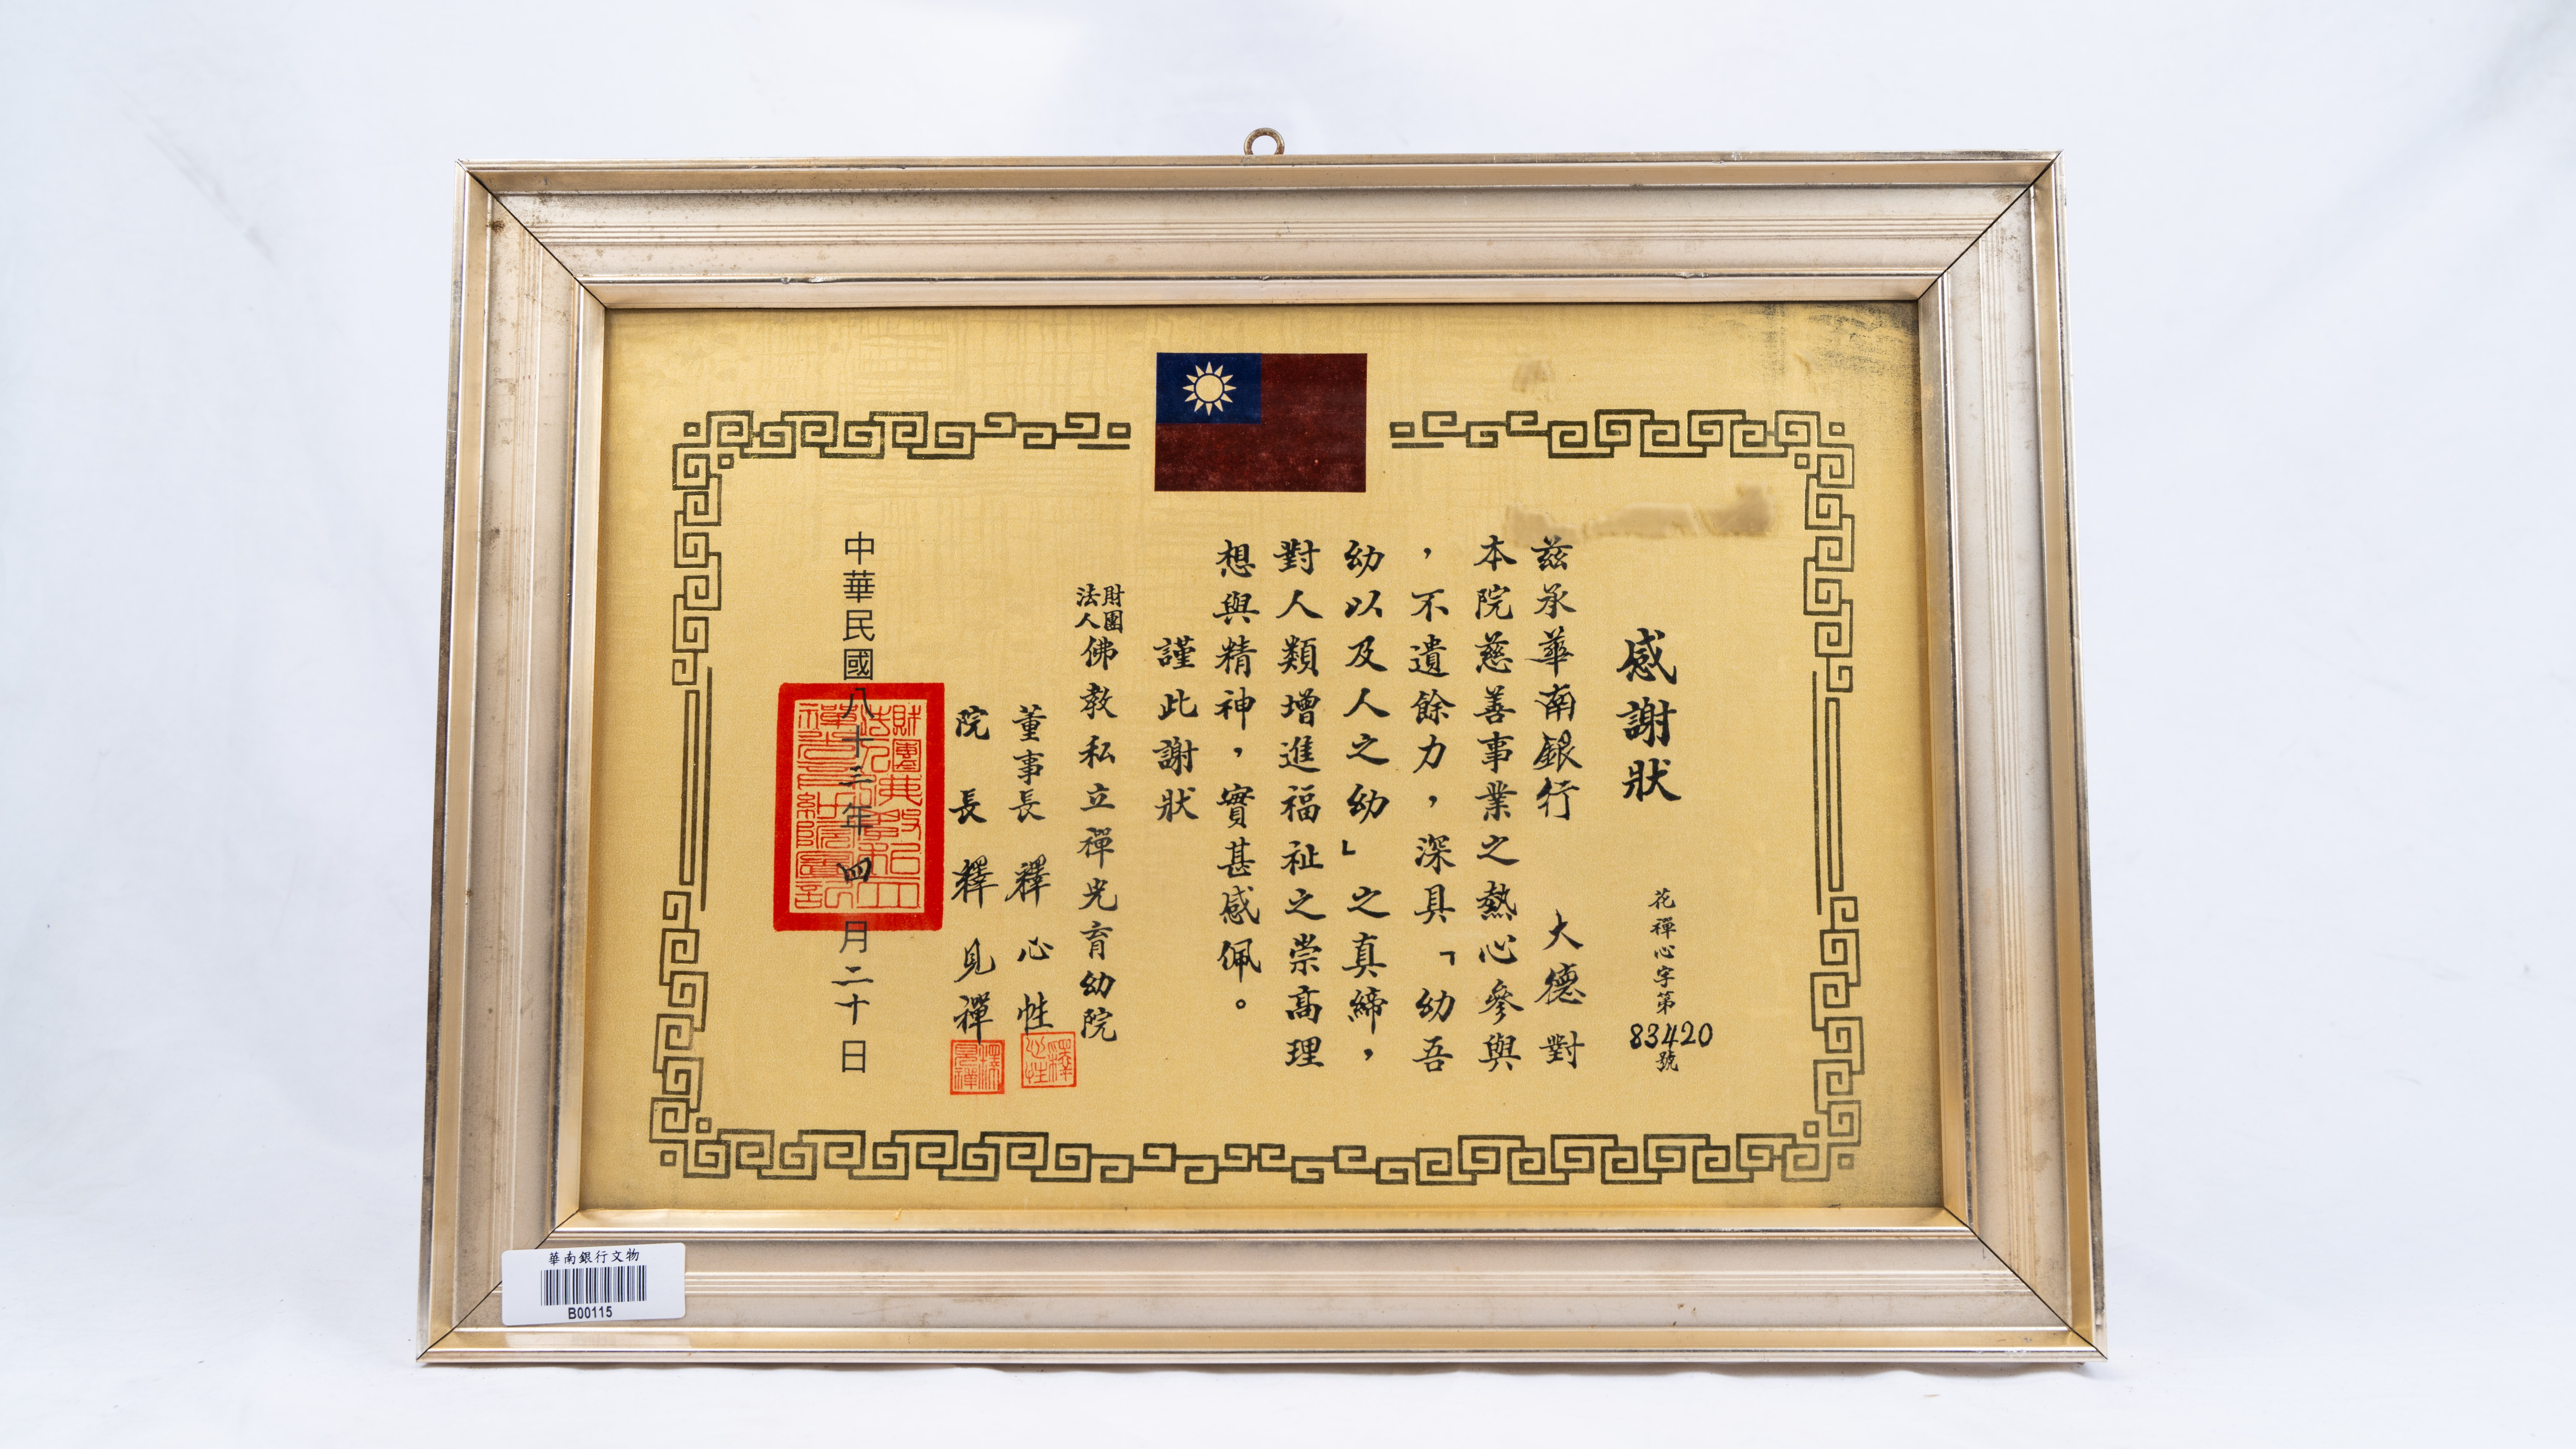 感謝狀
花禪心字第83420號
茲承華南銀行 大德對
本院慈善事業之熱心參與
，不遺餘力，深具「幼吾
幼以及人之幼」之真締，
對人類增進福祉之崇高理
想與精神，實甚感佩。
謹此謝狀
財團法人佛教私立禪光育幼院
董事長 釋心性
院長 釋見禪
中華民國八十三年四月二十日
華南銀行文物
B00115